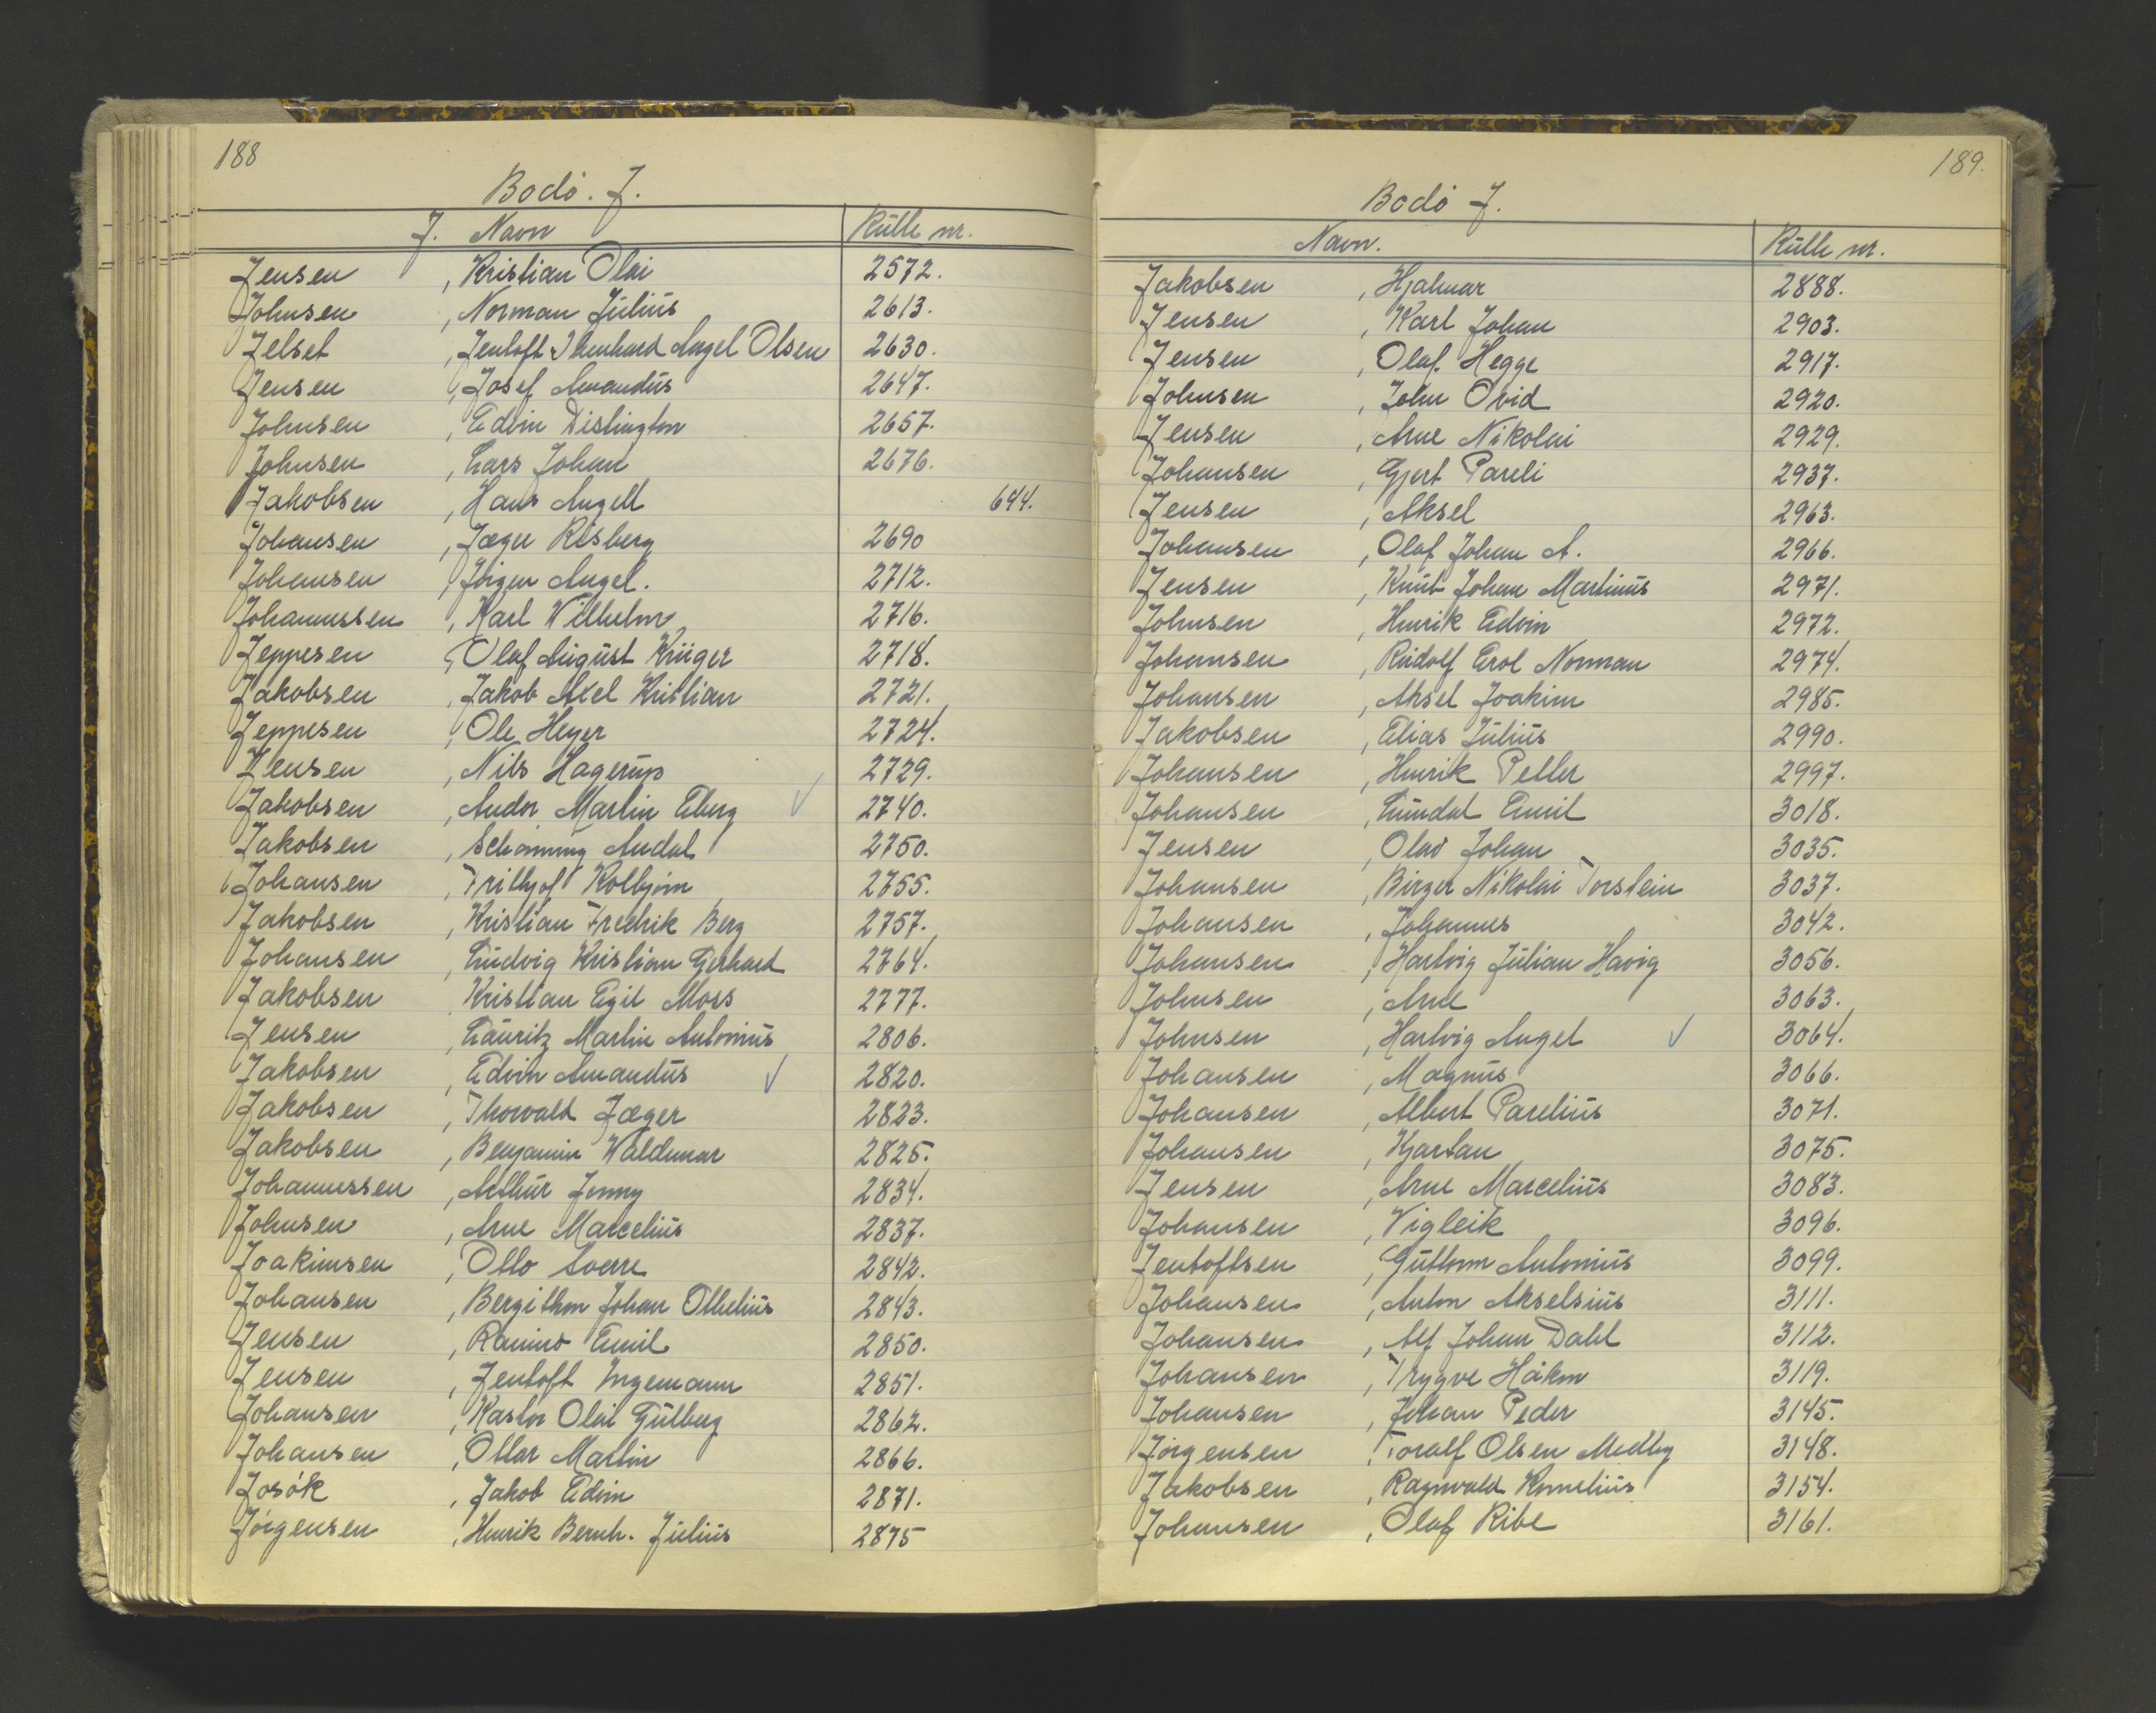 188
Bodø. J.
J. Navn Rulle nr.
Jensen , Kristian Olai 2572.
Johnsen , Norman Julius 2613.
Jelset , Jentoft Ihenhard Angel Olsen 2630.
Jensen , Josef Amandus 2647.
Johnsen , Edvin Distington 2657.
Johnsen , Lars Johan 2676.
Jakobsen , Hans Angell 644.
Johansen , Jæger Risberg 2690
Johansen , Jörgen Angel. 2712.
Johannessen , Karl Wilhelm 2716.
Jeppesen , Olaf August Krüger 2718.
Jakobsen , Jakob Axel Kristian 2721.
Jeppesen , Ole Heyer 2724.
Jensen , Nils Hagerup 2729.
Jakobsen , Andor Martin Eberg 2740.
Jakobsen , Schønning Andal 2750.
Johansen , Frithjof Kolbjørn 2755.
Jakobsen , Kristian Fredrik Berg 2757.
Johansen , Ludvig Kristian Gerhard 2764.
Jakobsen , Kristian Egil Moss 2777.
Jensen , Lauritz Martin Antonius 2806.
Jakobsen , Edvin Amandus 2820.
Jakobsen , Thorvald Jæger 2823.
Jakobsen , Benjamin Waldemar 2825.
Johannessen , Arthur Jonny 2834.
Johnsen , Arne Marcelius 2837.
Joakimsen , Otto Sverre 2842.
Johansen , Bergithon Johan Othelius 2843.
Jensen , Emil 2850.
Jensen , Jentoft Ingemann 2851.
Johansen , Kastor Olai Gulberg 2862.
Johansen , Ottar Martin 2866.
Josøk , Jakob Edvin 2871.
Jørgensen , Henrik Bernh. Julius 2875
189.
Bodø J.
Navn. Rulle nr.
Jakobsen , Hjalmar 2888.
Jensen , Karl Johan 2903.
Jensen , Olaf Hegge 2917.
Johnsen , John Ovid 2920.
Jensen , Arne Nikolai 2929.
Johansen , Gjert Pareli 2937.
Jensen , Aksel 2963.
Johansen , Olaf Johan A. 2966.
Jensen , Knut Johan Martinus 2971.
Johnsen , Henrik Edvin 2972.
Johansen , Rudolf Erol Norman 2974.
Johansen , Aksel Joakim 2985.
Jakobsen , Elias Julius 2990.
Johansen , Henrik Petter 2997.
Johansen , Emil 3018.
Jensen , Olav Johan 3035.
Johansen , Birger Nikolai Torstein 3037.
Johansen , Johannes 3042.
Johansen , Hartvig Julian Havig 3056.
Johnsen , Arne 3063.
Johnsen , Hartvig Angel 3064.
Johansen , Magnus 3066.
Johansen , Albert Parelius 3071.
Johansen , Kjartan 3075.
Jensen , Arne Marcelius 3083.
Johansen , Vigleik 3096.
Jentoftsen , Guttorm Antonius 3099.
Johansen , Anton Akselsius 3111.
Johansen , Alf Johan Dahl 3112.
Johansen , Trygve Håkon 3119.
Johansen , Johan Peder 3145.
Jørgensen , Toralf Olsen Medby 3148.
Jakobsen , Ragnvald Kornelius 3154.
Johansen , Olaf Ribe 3161.